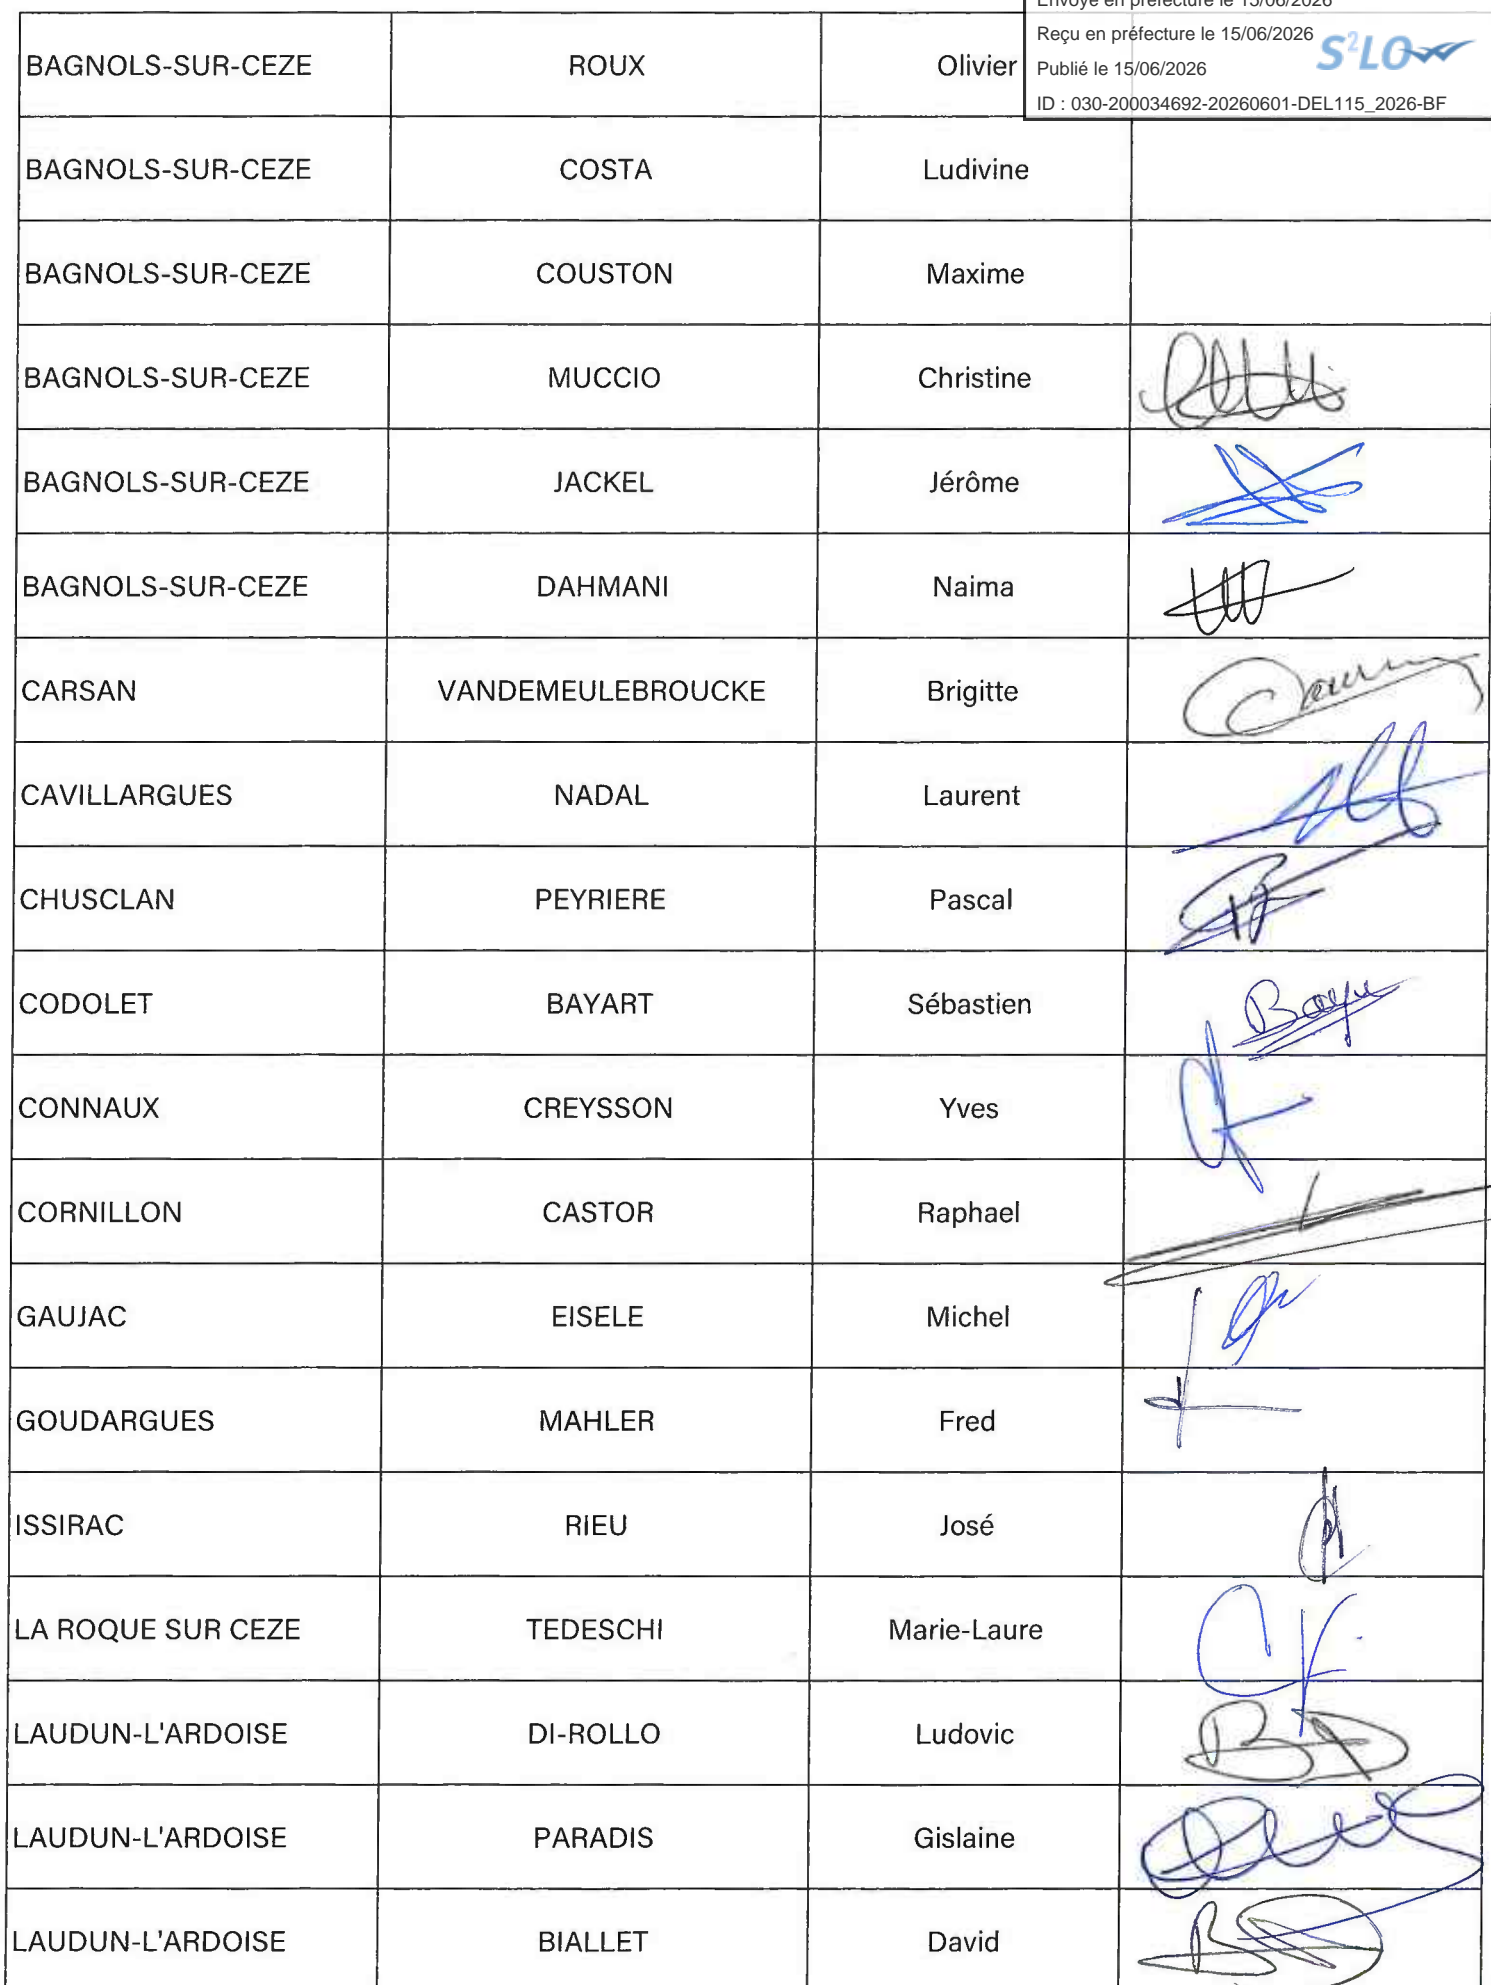 Envoyé en préfecture le 15/06/2026
Reçu en préfecture le 15/06/2026
S²LOW
Publié le 15/06/2026
ID : 030-200034692-20260601-DEL115_2026-BF
BAGNOLS-SUR-CEZE ROUX Olivier
BAGNOLS-SUR-CEZE COSTA Ludivine
BAGNOLS-SUR-CEZE COUSTON Maxime
BAGNOLS-SUR-CEZE MUCCIO Christine
BAGNOLS-SUR-CEZE JACKEL Jérôme
BAGNOLS-SUR-CEZE DAHMANI Naima
CARSAN VANDEMEULEBROUCKE Brigitte
CAVILLARGUES NADAL Laurent
CHUSCLAN PEYRIERE Pascal
CODOLET BAYART Sébastien
CONNAUX CREYSSON Yves
CORNILLON CASTOR Raphael
GAUJAC EISELE Michel
GOUDARGUES MAHLER Fred
ISSIRAC RIEU José
LA ROQUE SUR CEZE TEDESCHI Marie-Laure
LAUDUN-L'ARDOISE DI-ROLLO Ludovic
LAUDUN-L'ARDOISE PARADIS Gislaine
LAUDUN-L'ARDOISE BIALLET David